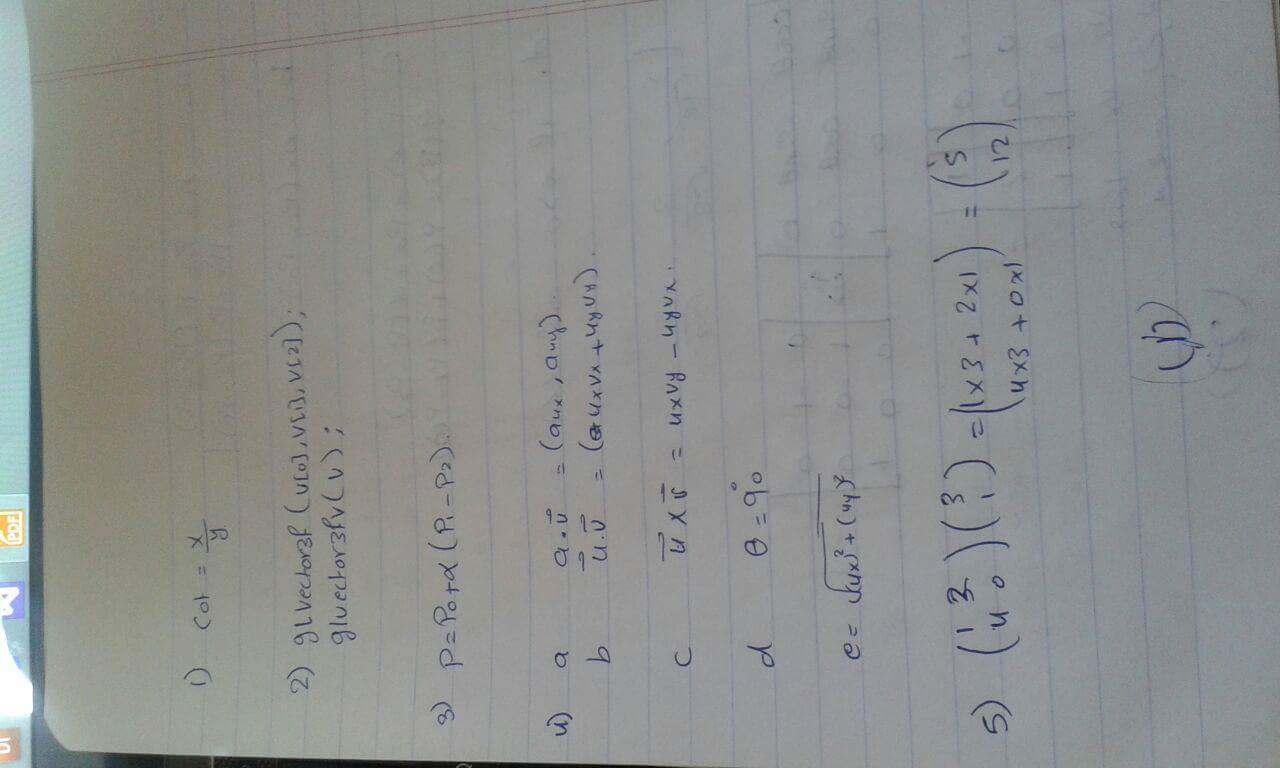 1) cot = x/y
2) glvector3f (v[0], v[1], v[2]);
glvector3fv (v);
3) P = P₀ + α (P₁ - P₂).
4) a a·v⃗ = (aux, auy).
b u⃗·v⃗ = (uxvx + uyvy).
c u⃗ x v⃗ = uxvy - uyvx.
d θ = 90°
e = √(ux)² + (uy)²
5) (1 2 / 4 0) (3 / 1) = (1x3 + 2x1 / 4x3 + 0x1) = (5 / 12)
PDF